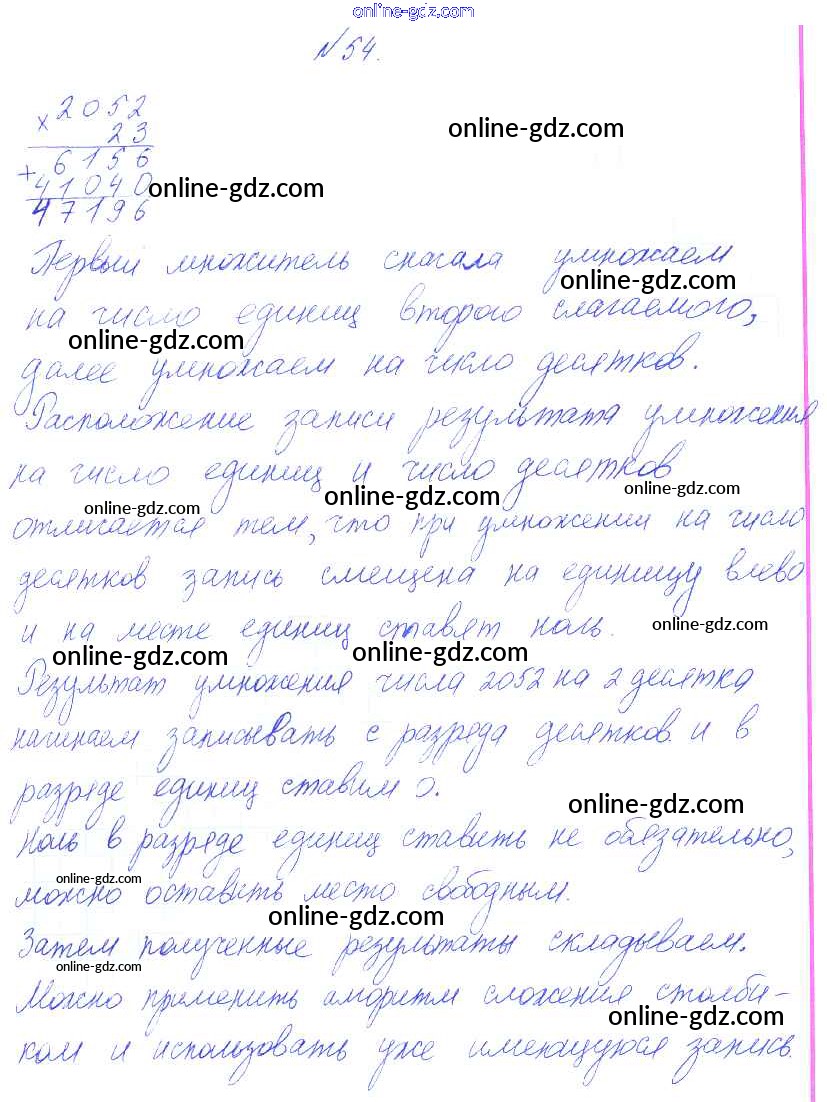 online-gdz.com
№ 54.
× 2052
23
online-gdz.com
+ 6156
41040
online-gdz.com
47196
Первый множитель сначала умножаем
online-gdz.com
на число единиц второго слагаемого,
online-gdz.com
далее умножаем на число десятков.
Расположение записи результата умножения
на число единиц и число десятков
online-gdz.com online-gdz.com online-gdz.com
отличается тем, что при умножении на число
десятков запись смещена на единицу влево
и на месте единиц ставят ноль.
online-gdz.com
online-gdz.com online-gdz.com
Результат умножения числа 2052 на 2 десятка
начинаем записывать с разряда десятков и в
разряде единиц ставим 0.
online-gdz.com
Ноль в разряде единиц ставить не обязательно,
online-gdz.com
можно оставить место свободным.
online-gdz.com
Затем полученные результаты складываем.
online-gdz.com
Можно применить алгоритм сложения столби-
online-gdz.com
ком и использовать уже имеющуюся запись.